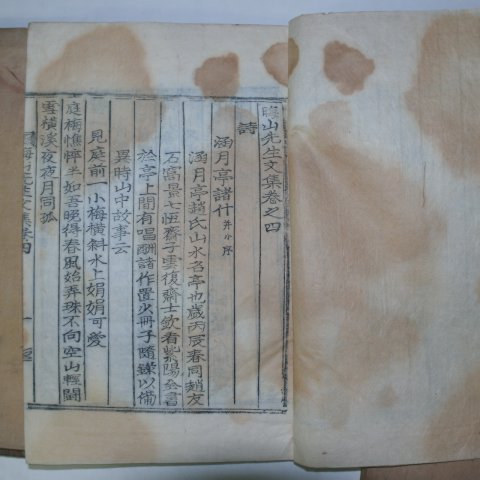 晦山先生文集卷之四
詩
涵月亭諸什 并小序
涵月亭趙氏山水名亭也歲丙辰春同趙友
石窩景七恒齋子雲復齋士欽看紫陽全書
於亭上間有唱酬諸作置火冊子隨錄以備
異時山中故事云
見庭前一小梅橫斜水上娟娟可愛
庭梅憔悴半如吾晚得春風始弄珠不向空山輕鬪
雪橫溪夜夜月同孤